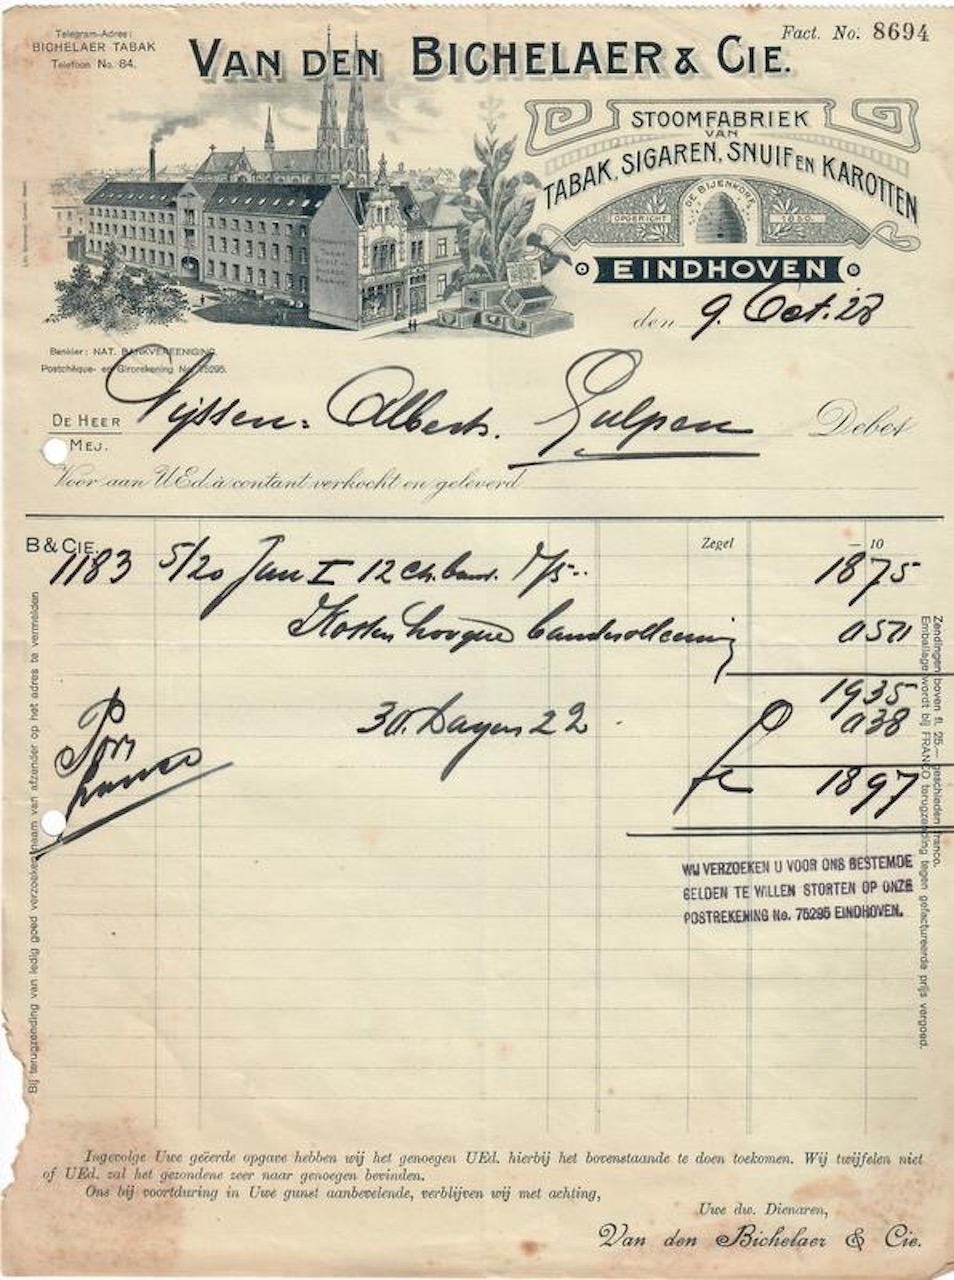 Telegram-Adres:
BICHELAER TABAK
Telefoon No. 84.
Fact. No. 8694
VAN DEN BICHELAER & CIE.
STOOMFABRIEK
VAN
TABAK, SIGAREN, SNUIF EN KAROTTEN
DE BIJENKORF
OPGERICHT 1850.
EINDHOVEN
den 9. Oct. 28
Bankier: NAT. BANKVEREENIGING.
Postchèque- en Girorekening No. 75295.
DE HEER
MEJ.
Nijssen: Alberts. Gulpen Debet
Voor aan UEd. à contant verkocht en geleverd
B & CIE. Zegel — 10
1183 5/20 Jan I 12 ch. band. 1875
Kosten hoogere banderolleering 050
1935
30 Dagen 2 2 038
1897
WIJ VERZOEKEN U VOOR ONS BESTEMDE
GELDEN TE WILLEN STORTEN OP ONZE
POSTREKENING No. 75295 EINDHOVEN.
Bij terugzending van ledig goed verzoeken naam van afzender op het adres te vermelden
Zendingen boven fl. 25.— geschieden franco.
Emballage wordt bij FRANCO terugzending tegen gefactureerde prijs vergoed.
Ingevolge Uwe geëerde opgave hebben wij het genoegen UEd. hierbij het bovenstaande te doen toekomen. Wij twijfelen niet
of UEd. zal het gezondene zeer naar genoegen bevinden.
Ons bij voortduring in Uwe gunst aanbevelende, verblijven wij met achting,
Uwe dw. Dienaren,
Van den Bichelaer & Cie.